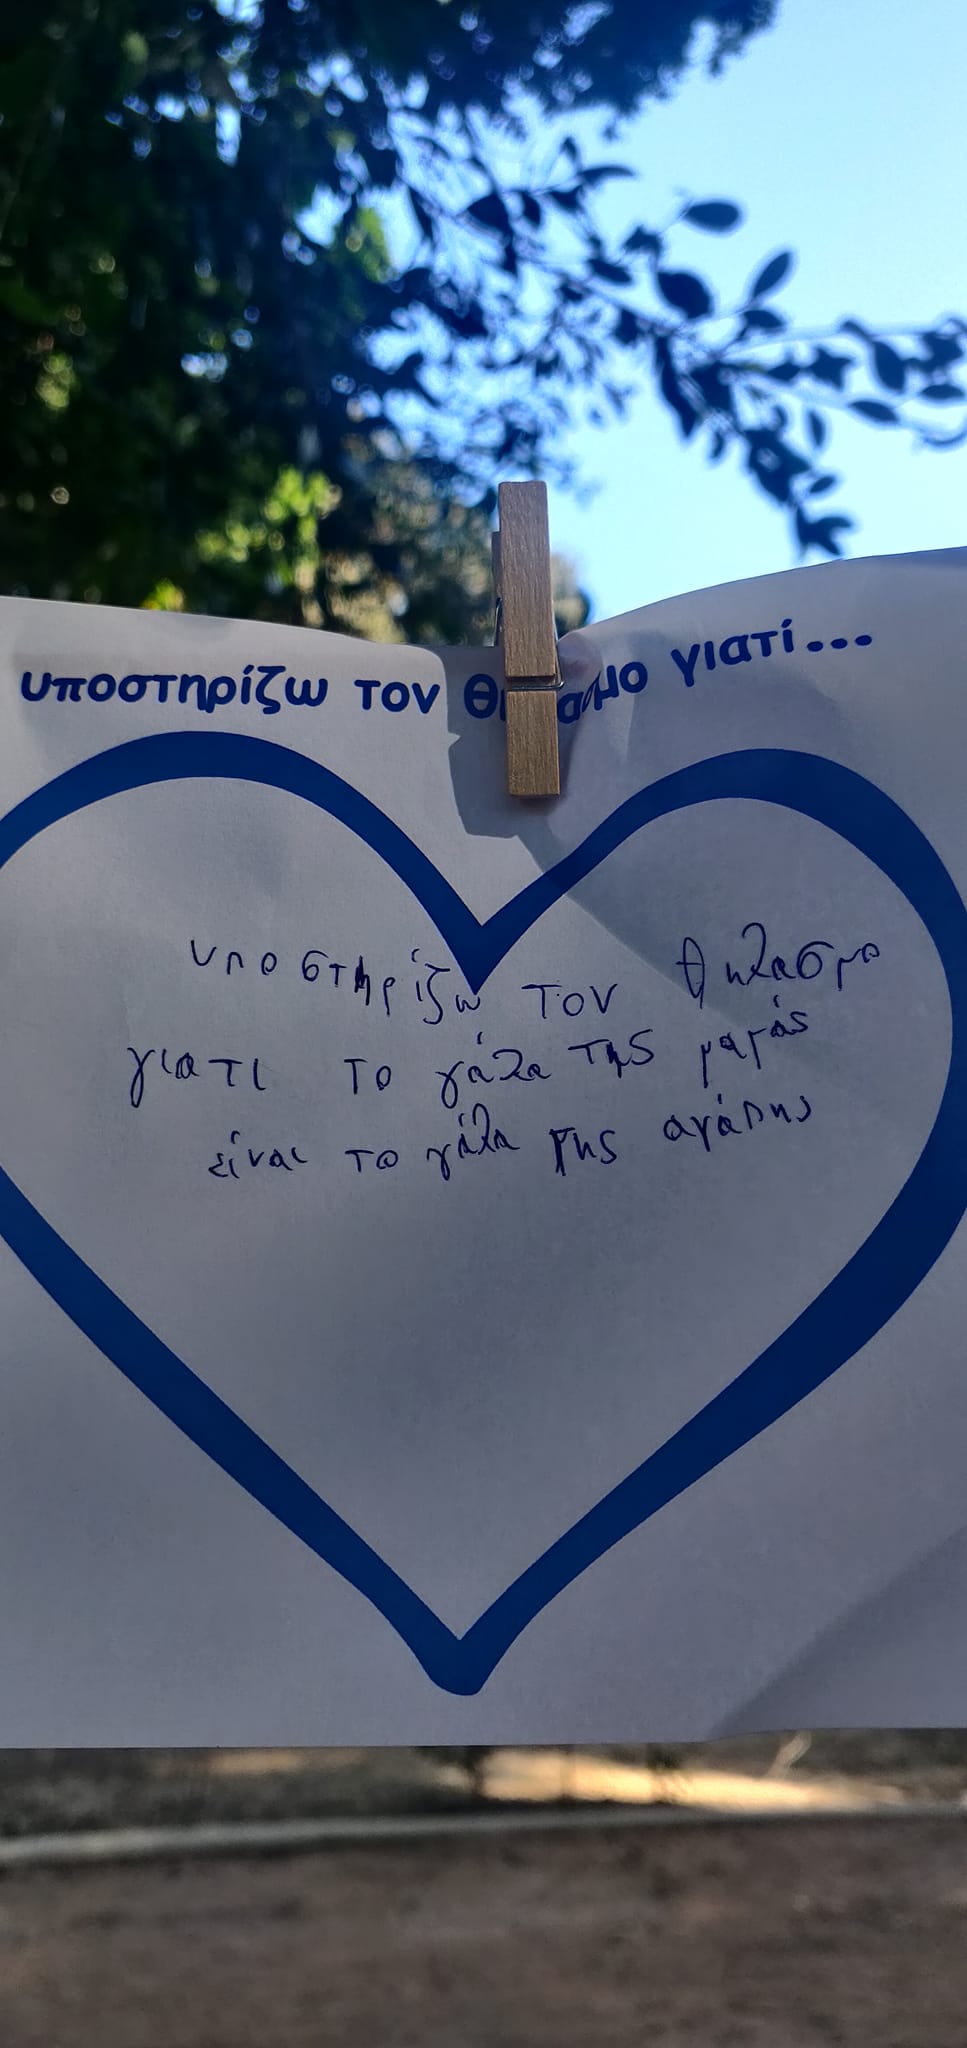 υποστηρίζω τον θηλασμο γιατί...
υποστηρίζω τον θηλασμο
γιατι το γάλα της μαμάς
είναι το γάλα της αγάπης